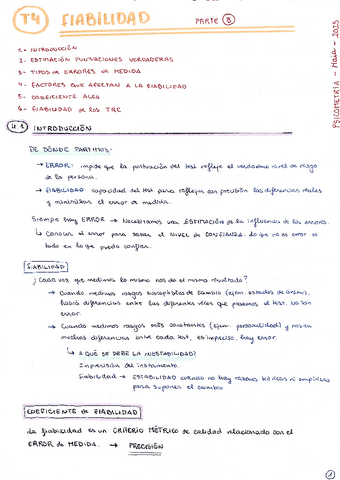 T4 FIABILIDAD PARTE B
1- INTRODUCCIÓN
2- ESTIMACIÓN PUNTUACIONES VERDADERAS
3- TIPOS DE ERRORES DE MEDIDA
4- FACTORES QUE AFECTAN A LA FIABILIDAD
5- COEFICIENTE ALFA
6- FIABILIDAD DE LOS TRC
PSICOMETRÍA - María - 2023
4.1 INTRODUCCIÓN
DE DÓNDE PARTIMOS:
→ ERROR: impide que la puntuación del test refleje el verdadero nivel de rasgo
de la persona.
→ FIABILIDAD capacidad del test para reflejar con precisión las diferencias reales
y minimizar el error de medida.
Siempre hay ERROR → Necesitamos una ESTIMACIÓN de la influencia de los errores.
↳ Conocer el error para saber el NIVEL DE CONFIANZA. Lo que no es error es
todo en lo que puedo confiar.
FIABILIDAD
¿Cada vez que medimos lo mismo nos da el mismo resultado?
→ Cuando medimos rasgos susceptibles de cambio (ejem. estados de ánimo),
habrá diferencias entre las diferentes veces que pasemos el test. No son
error.
→ Cuando medimos rasgos más constantes (ejem. personalidad) y nos da
muchas diferencias entre cada test, es impreciso, hay error.
↳ A QUÉ SE DEBE LA INESTABILIDAD?
Imprecisión del instrumento.
Fiabilidad → ESTABILIDAD cuando no hay razones teóricas ni empíricas
para suponer el cambio
COEFICIENTE DE FIABILIDAD
La fiabilidad es un CRITERIO MÉTRICO de calidad relacionado con el
ERROR DE MEDIDA. → PRECISIÓN
1